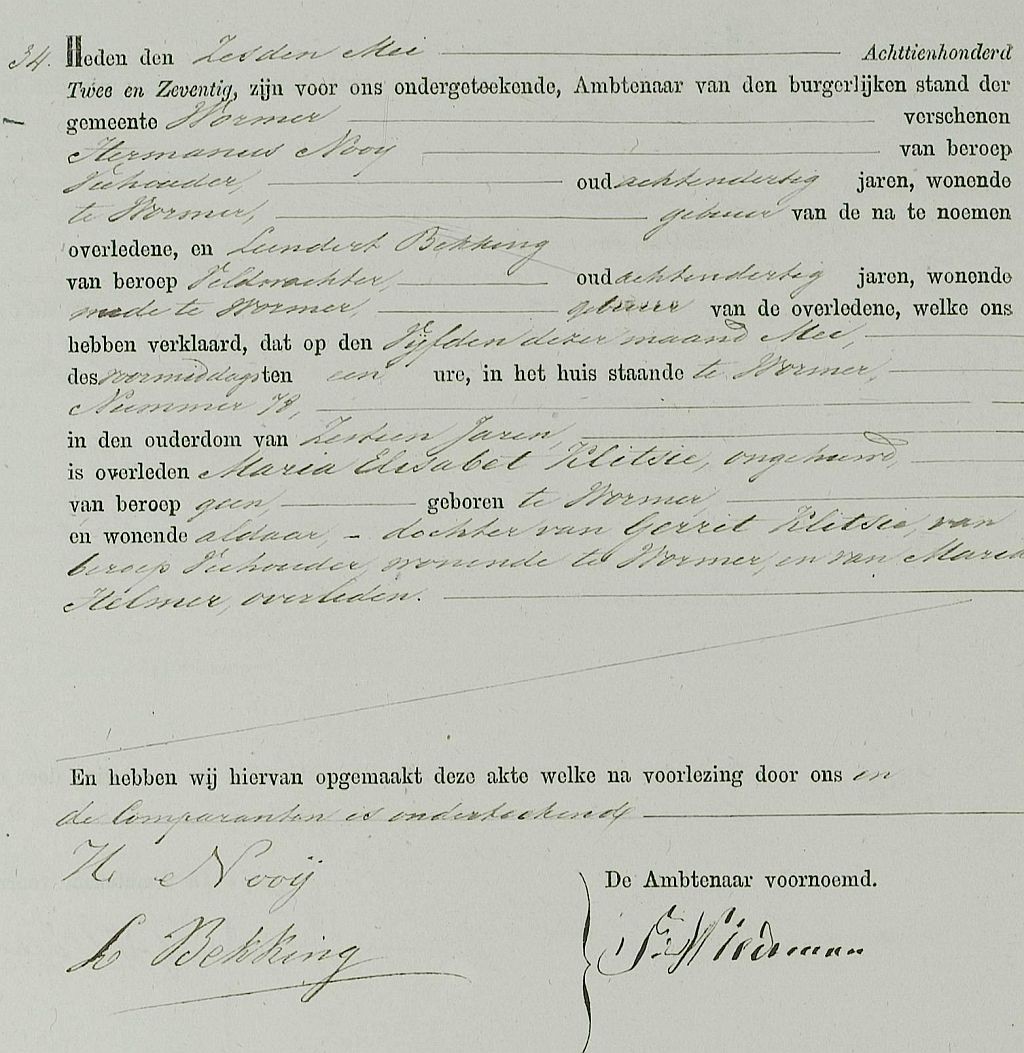 34. Heden den Zesden Mei Achttienhonderd
Twee en Zeventig, zijn voor ons ondergeteekende, Ambtenaar van den burgerlijken stand der
gemeente Wormer verschenen
Hermanus Nooij van beroep
Veehouder, oud achtendertig jaren, wonende
te Wormer, gebuur van de na te noemen
overledene, en Lendert Bekking
van beroep Veldwachter, oud achtendertig jaren, wonende
mede te Wormer, gebuur van de overledene, welke ons
hebben verklaard, dat op den Vijfden dezer maand Mei,
des voormiddags ten een ure, in het huis staande te Wormer,
Nummer 78,
in den ouderdom van Zestien Jaren,
is overleden Maria Elisabet Klitsie, ongehuwd,
van beroep geen, geboren te Wormer,
en wonende aldaar, - dochter van Gerret Klitsie, van
beroep Veehouder, wonende te Wormer, en van Maria
Helmer, overleden.
En hebben wij hiervan opgemaakt deze akte welke na voorlezing door ons en
de Comparanten is onderteekend
H Nooij
De Ambtenaar voornoemd.
L Bekking